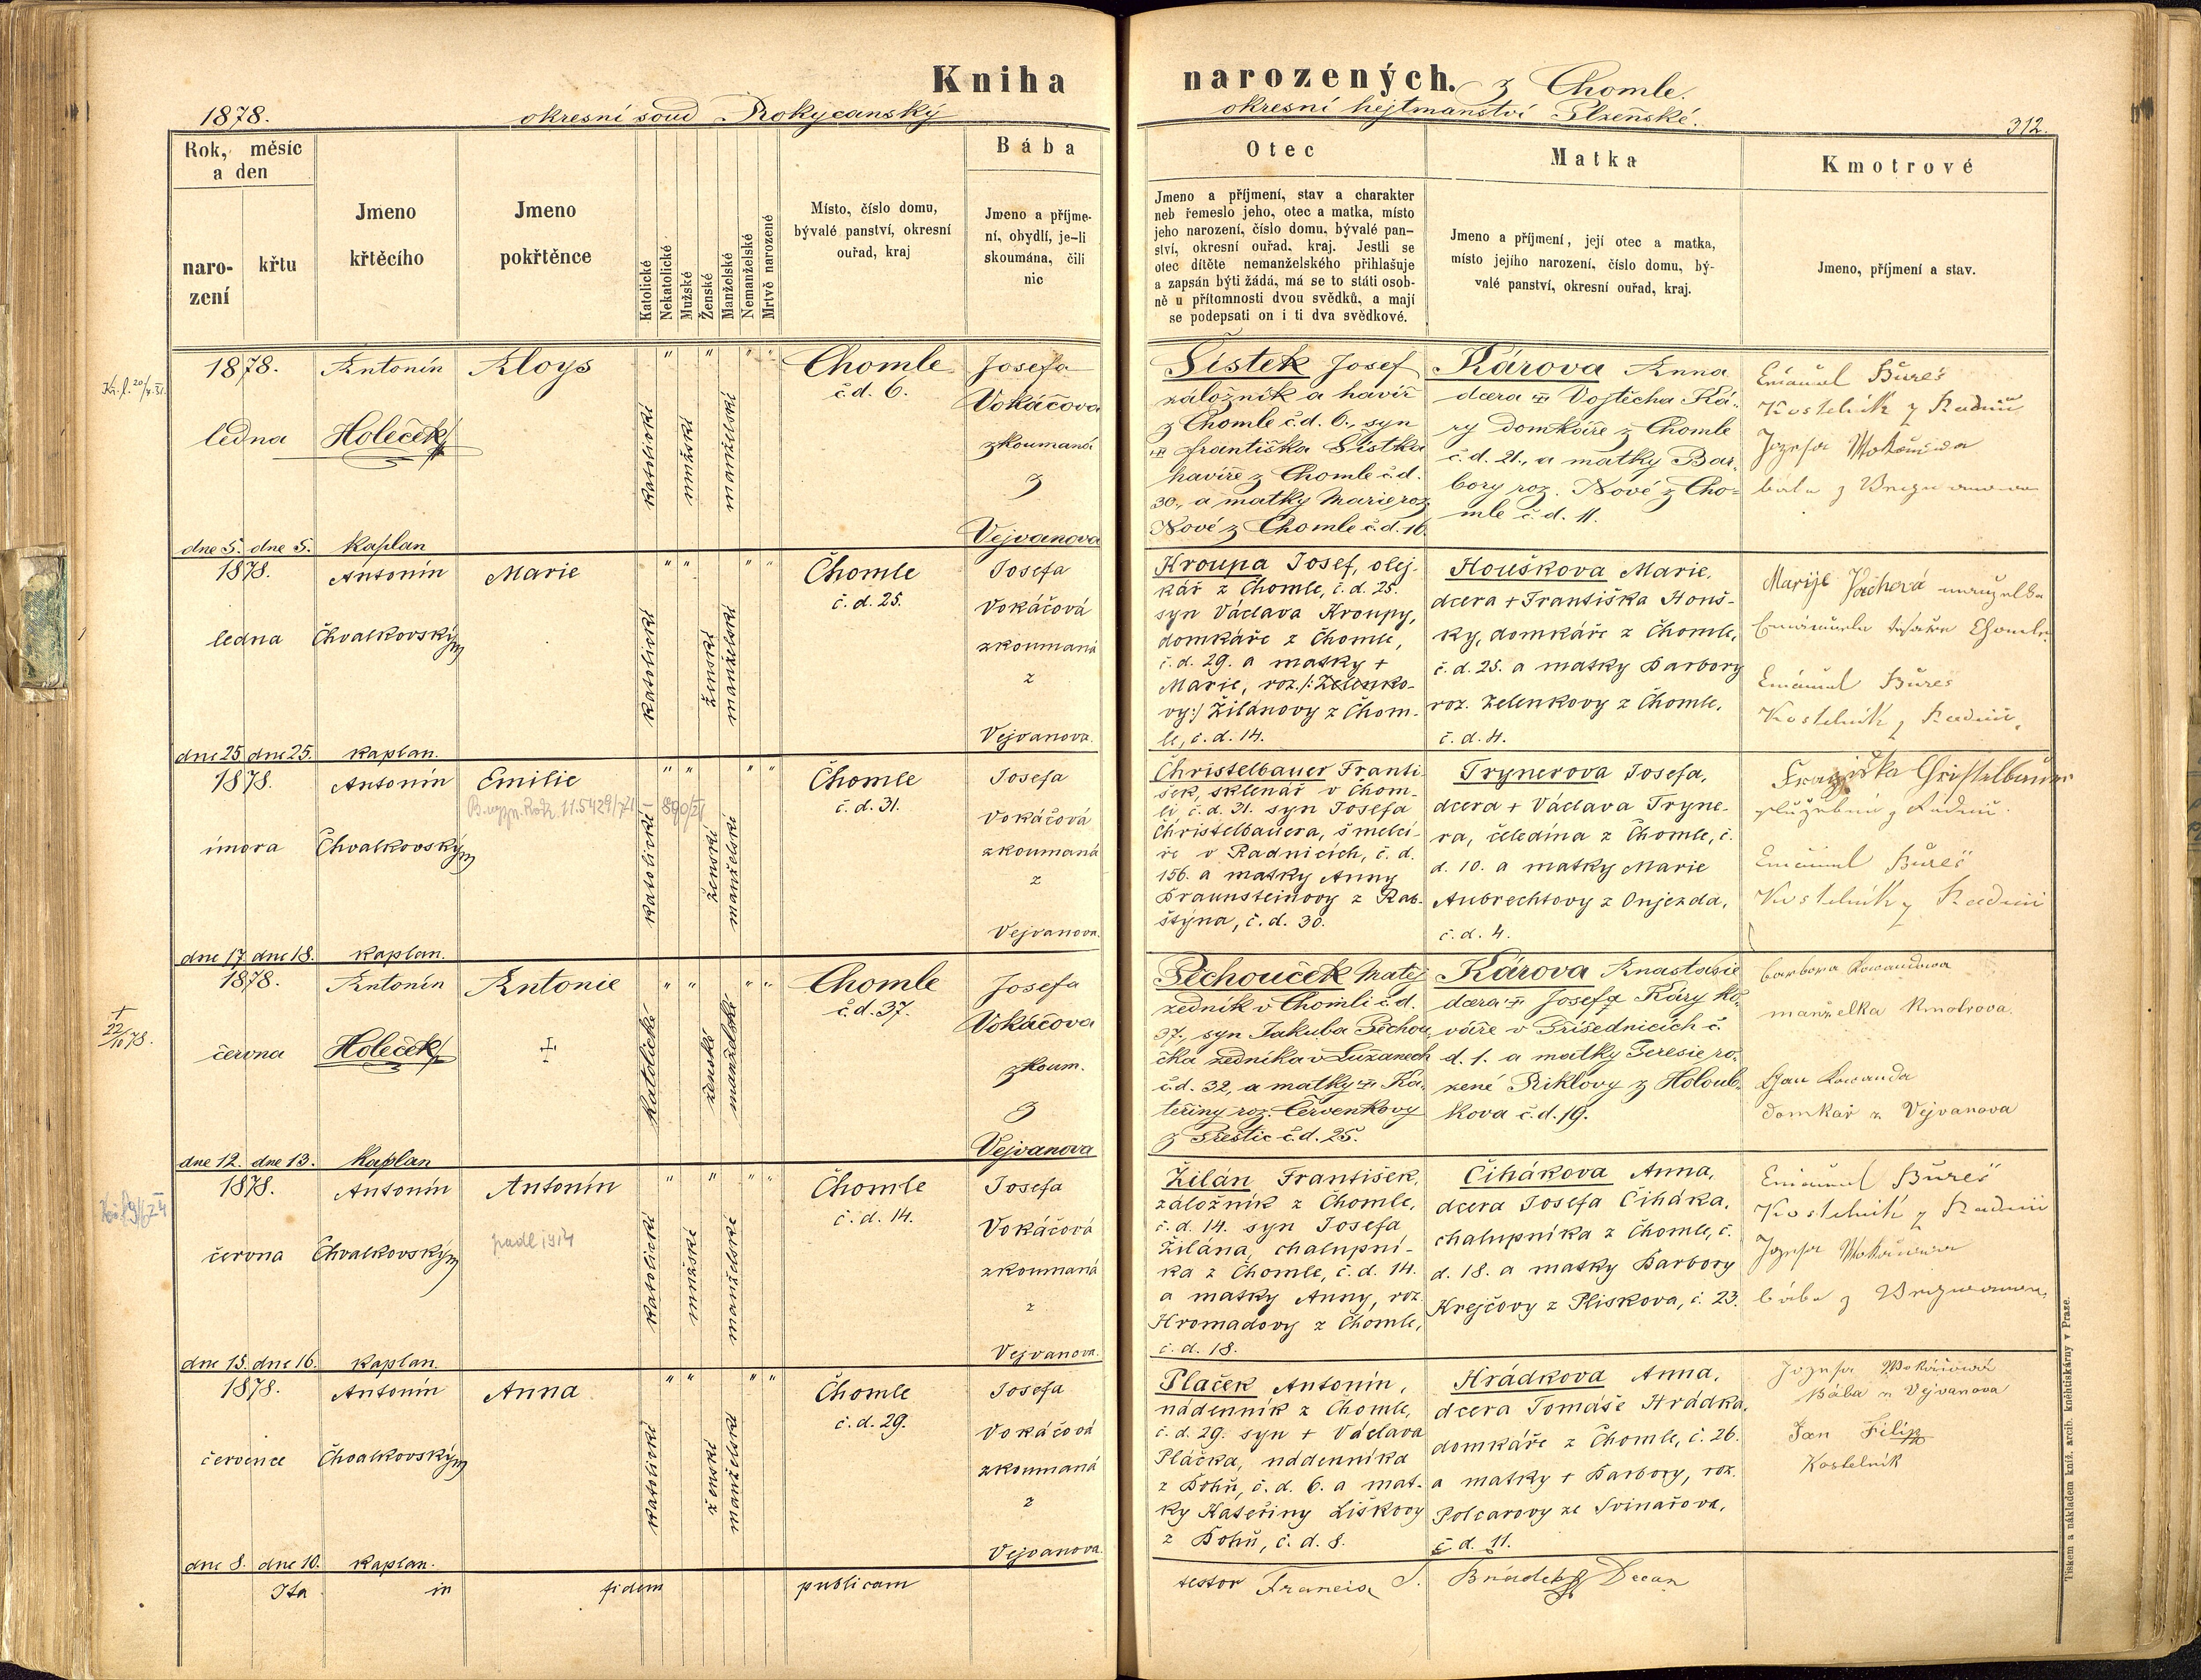 Kniha narozených. z Chomle.
1878.
okresní soud Rokycanský
okresní hejtmanství Plzeňské.
312.
Rok, měsíc
a den
naro-
zení
křtu
Jmeno
křtěcího
Jmeno
pokřtěnce
Katolické
Nekatolické
Mužské
Ženské
Manželské
Nemanželské
Mrtvě narozené
Místo, číslo domu,
bývalé panství, okresní
ouřad, kraj
Bába
Jmeno a příjme-
ní, obydlí, je-li
skoumána, čili
nic
Otec
Jmeno a příjmení, stav a charakter
neb řemeslo jeho, otec a matka, místo
jeho narození, číslo domu, bývalé pan-
ství, okresní ouřad, kraj. Jestli se
otec dítěte nemanželského přihlašuje
a zapsán býti žádá, má se to státi osob-
ně u přítomnosti dvou svědků, a mají
se podepsati on i ti dva svědkové.
Matka
Jmeno a příjmení, její otec a matka,
místo jejího narození, číslo domu, bý-
valé panství, okresní ouřad, kraj.
Kmotrové
Jmeno, příjmení a stav.
1878.
ledna
dne 5. dne 5.
Antonín
Holeček
kaplan
Aloys
katolické
mužské
manželské
Chomle
č.d. 6.
Josefa
Vokáčova
zkoumaná
z
Vejvanova
Šístek Josef
záložník a havíř
z Chomle č.d. 6., syn
Františka Šístka
havíře z Chomle č.d.
30., a matky Marie roz.
Nové z Chomle č.d. 16.
Károva Anna
dcera Vojtěcha Ká-
ry domkáře z Chomle
č.d. 21., a matky Bar-
bory roz. Nové z Cho-
mle č.d. 11.
Emanuel Bureš
Kostelník z Radnic
1878.
ledna
dne 25 dne 25.
Antonín
Chvalkovský
kaplan.
Marie
katolické
ženské
manželské
Chomle
č. d. 25.
Josefa
Vokáčová
zkoumaná
z
Vejvanova.
Kroupa Josef, olej-
kář z Chomle, č.d. 25.
syn Václava Kroupy,
domkáře z Chomle,
č.d. 29. a matky +
Marie, roz. /: Zelenko-
vy:/ Žilánovy z Chom-
le, č.d. 14.
Houškova Marie,
dcera + Františka Houš-
ky, domkáře z Chomle,
č.d. 25. a matky Barbory
roz. Zelenkovy z Chomle,
č.d. 4.
Emanuel Bureš
Kostelník z Radnic
1878.
února
dne 17 dne 18.
Antonín
Chvalkovský
kaplan.
Emilie
katolické
ženské
manželské
Chomle
č.d. 31.
Josefa
Vokáčová
zkoumaná
z
Vejvanova.
Christelbauer Franti-
šek sklenář v Chom-
li, č.d. 31. syn Josefa
Christelbauera, šmelcí-
ře v Radnicích, č.d.
156. a matky Anny
Braunsteinovy z Rab-
štýna, č.d. 30.
Trynerova Josefa,
dcera + Václava Tryne-
ra, čeledína z Chomle, č.
d. 10. a matky Marie
Aubrechtovy z Oujezda,
č.d. 4.
Emanuel Bureš
Kostelník z Radnic
+
22/10 78.
1878.
června
dne 12. dne 13.
Antonín
Holeček
kaplan
Antonie
katolické
ženské
manželské
Chomle
č.d. 37.
Josefa
Vokáčova
zkoum.
z
Vejvanova
Pěchouček Matěj
zedník v Chomli č.d.
37., syn Jakuba Pěchou-
čka zedníka v Lužanech
č.d. 32, a matky Ka-
teřiny roz. Červenkovy
z Přeštic č.d. 25.
Károva Anastasie
dcera Josefa Káry ko-
váře v Příšednicích č.
d. 1. a matky Teresie ro-
zené Riklovy z Holoub-
kova č.d. 19.
barbora Kowandowa
manželka Kmotrova.
Jan Kowanda
domkař z Vejvanova
1878.
června
dne 15. dne 16.
Antonín
Chvalkovský
kaplan.
Antonín
padl 1914
katolické
mužské
manželské
Chomle
č.d. 14.
Josefa
Vokáčová
zkoumaná
z
Vejvanova.
Žilán František,
záložník z Chomle,
č.d. 14. syn Josefa
Žilána, chalupní-
ka z Chomle, č.d. 14.
a matky Anny, roz
Hromadovy z Chomle,
č.d. 18.
Čihákova Anna,
dcera Josefa Čiháka,
chalupníka z Chomle, č.
d. 18. a matky Barbory
Krejčovy z Plískova, č. 23.
Emanuel Bureš
Kostelník z Radnic
1878.
července
dne 8. dne 10.
Antonín
Chvalkovský
kaplan.
Anna
katolické
ženské
manželské
Chomle
č.d. 29.
Josefa
Vokáčová
zkoumaná
z
Vejvanova.
Plaček Antonín,
nádenník z Chomle,
č.d. 29. syn + Václava
Pláčka, nádenníka
z Bohů, č.d. 6. a mat-
ky Kateřiny Liškovy
z Bohů, č.d. 8.
Hrádkova Anna,
dcera Tomáše Hrádka,
domkáře z Chomle, č. 26.
a matky + Barbory, roz.
Polcarovy ze Svinařova,
č.d. 11.
Bába z Vejvanova
Jan Filip
Kostelník
Ita in fidem publicam
testor Francis S. Decan
Tiskem a nákladem kníž. arcib. knihtiskárny v Praze.